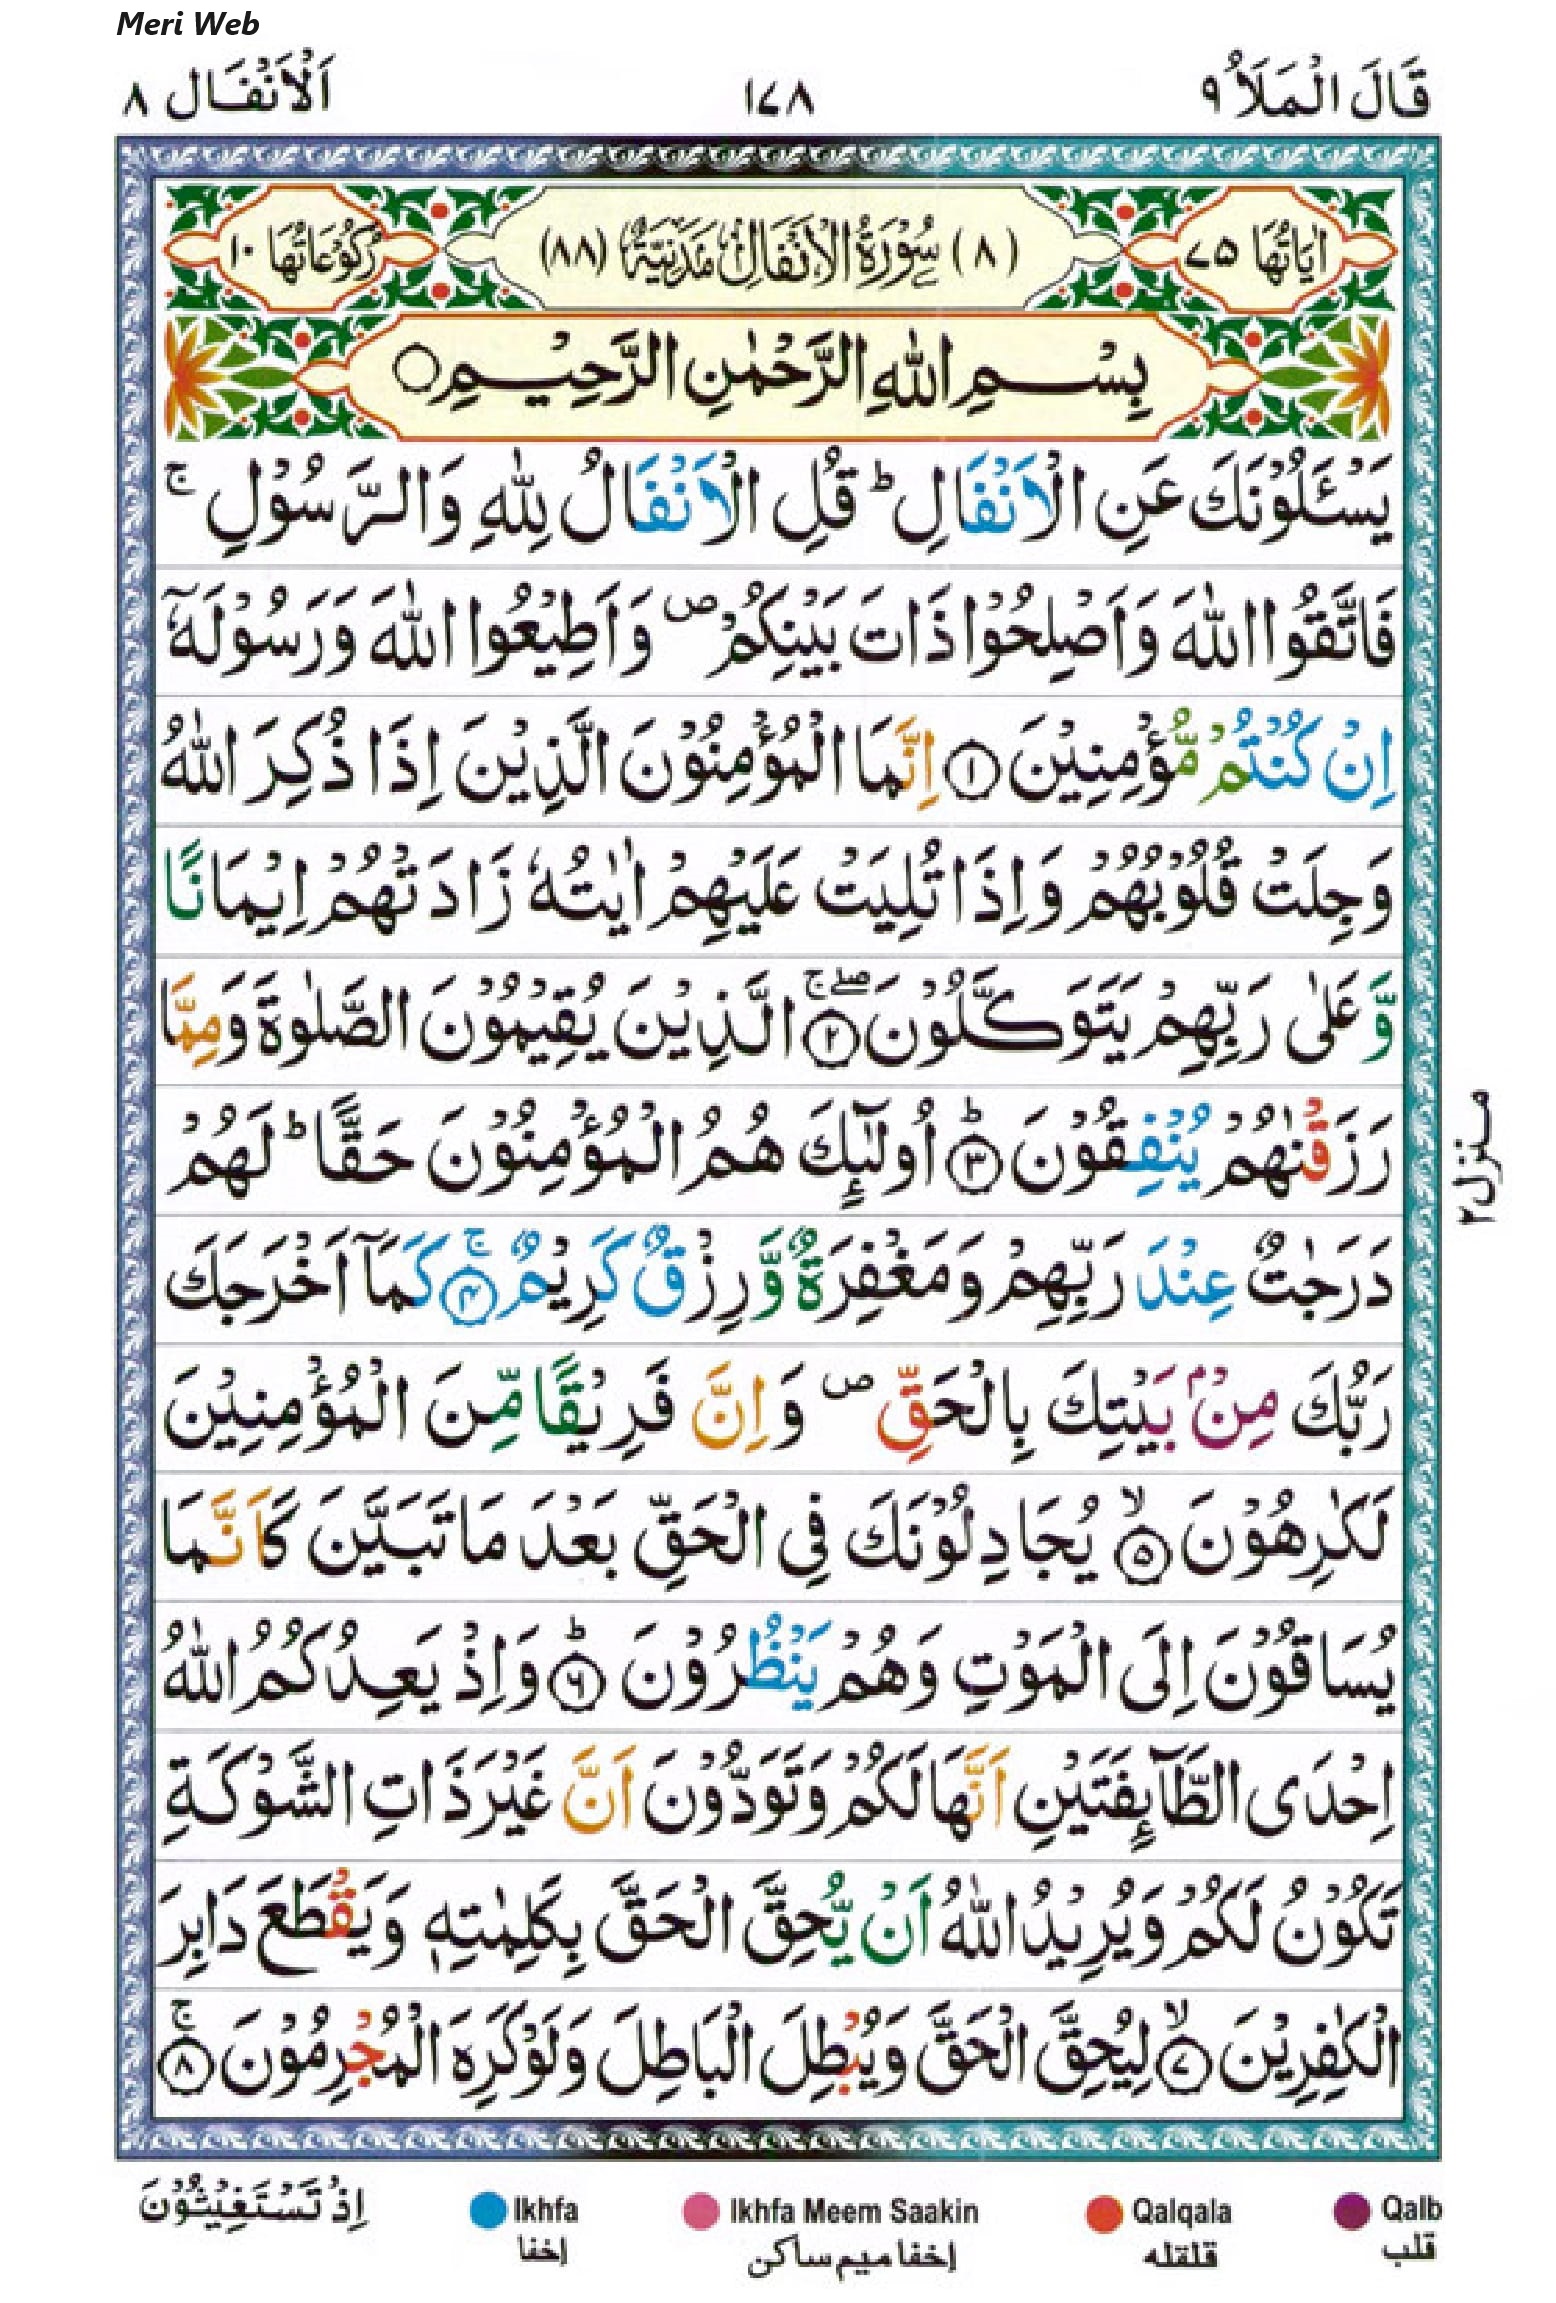 Meri Web
قَالَ الْمَلَاُ ٩
١٧٨
اَلْاَنْفَال ٨
اٰيَاتُهَا ٧٥
(٨) سُوْرَةُ الْاَنْفَالِ مَدَنِيَّةٌ (٨٨)
رُكُوْعَاتُهَا ١٠
بِسْمِ اللّٰهِ الرَّحْمٰنِ الرَّحِيْمِ ○
يَسْـَٔلُوْنَكَ عَنِ الْاَنْفَالِ ؕ قُلِ الْاَنْفَالُ لِلّٰهِ وَالرَّسُوْلِ ۚ
فَاتَّقُوا اللّٰهَ وَاَصْلِحُوْا ذَاتَ بَيْنِكُمْ ۪ وَاَطِيْعُوا اللّٰهَ وَرَسُوْلَهٗۤ
اِنْ كُنْتُمْ مُّؤْمِنِيْنَ ① اِنَّمَا الْمُؤْمِنُوْنَ الَّذِيْنَ اِذَا ذُكِرَ اللّٰهُ
وَجِلَتْ قُلُوْبُهُمْ وَاِذَا تُلِيَتْ عَلَيْهِمْ اٰيٰتُهٗ زَادَتْهُمْ اِيْمَانًا
وَّعَلٰى رَبِّهِمْ يَتَوَكَّلُوْنَ ② ۖۚ الَّذِيْنَ يُقِيْمُوْنَ الصَّلٰوةَ وَمِمَّا
رَزَقْنٰهُمْ يُنْفِقُوْنَ ③ ؕ اُولٰٓئِكَ هُمُ الْمُؤْمِنُوْنَ حَقًّا ؕ لَهُمْ
دَرَجٰتٌ عِنْدَ رَبِّهِمْ وَمَغْفِرَةٌ وَّرِزْقٌ كَرِيْمٌ ④ ۚ كَمَاۤ اَخْرَجَكَ
رَبُّكَ مِنْۢ بَيْتِكَ بِالْحَقِّ ۪ وَاِنَّ فَرِيْقًا مِّنَ الْمُؤْمِنِيْنَ
لَكٰرِهُوْنَ ⑤ ۙ يُجَادِلُوْنَكَ فِى الْحَقِّ بَعْدَ مَا تَبَيَّنَ كَاَنَّمَا
يُسَاقُوْنَ اِلَى الْمَوْتِ وَهُمْ يَنْظُرُوْنَ ⑥ ؕ وَاِذْ يَعِدُكُمُ اللّٰهُ
اِحْدَى الطَّآئِفَتَيْنِ اَنَّهَا لَكُمْ وَتَوَدُّوْنَ اَنَّ غَيْرَ ذَاتِ الشَّوْكَةِ
تَكُوْنُ لَكُمْ وَيُرِيْدُ اللّٰهُ اَنْ يُّحِقَّ الْحَقَّ بِكَلِمٰتِهٖ وَيَقْطَعَ دَابِرَ
الْكٰفِرِيْنَ ⑦ ۙ لِيُحِقَّ الْحَقَّ وَيُبْطِلَ الْبَاطِلَ وَلَوْ كَرِهَ الْمُجْرِمُوْنَ ⑧ ۚ
منزل ٢
اِذْ تَسْتَغِيْثُوْنَ
Ikhfa
إخفا
Ikhfa Meem Saakin
إخفا ميم ساكن
Qalqala
قلقله
Qalb
قلب